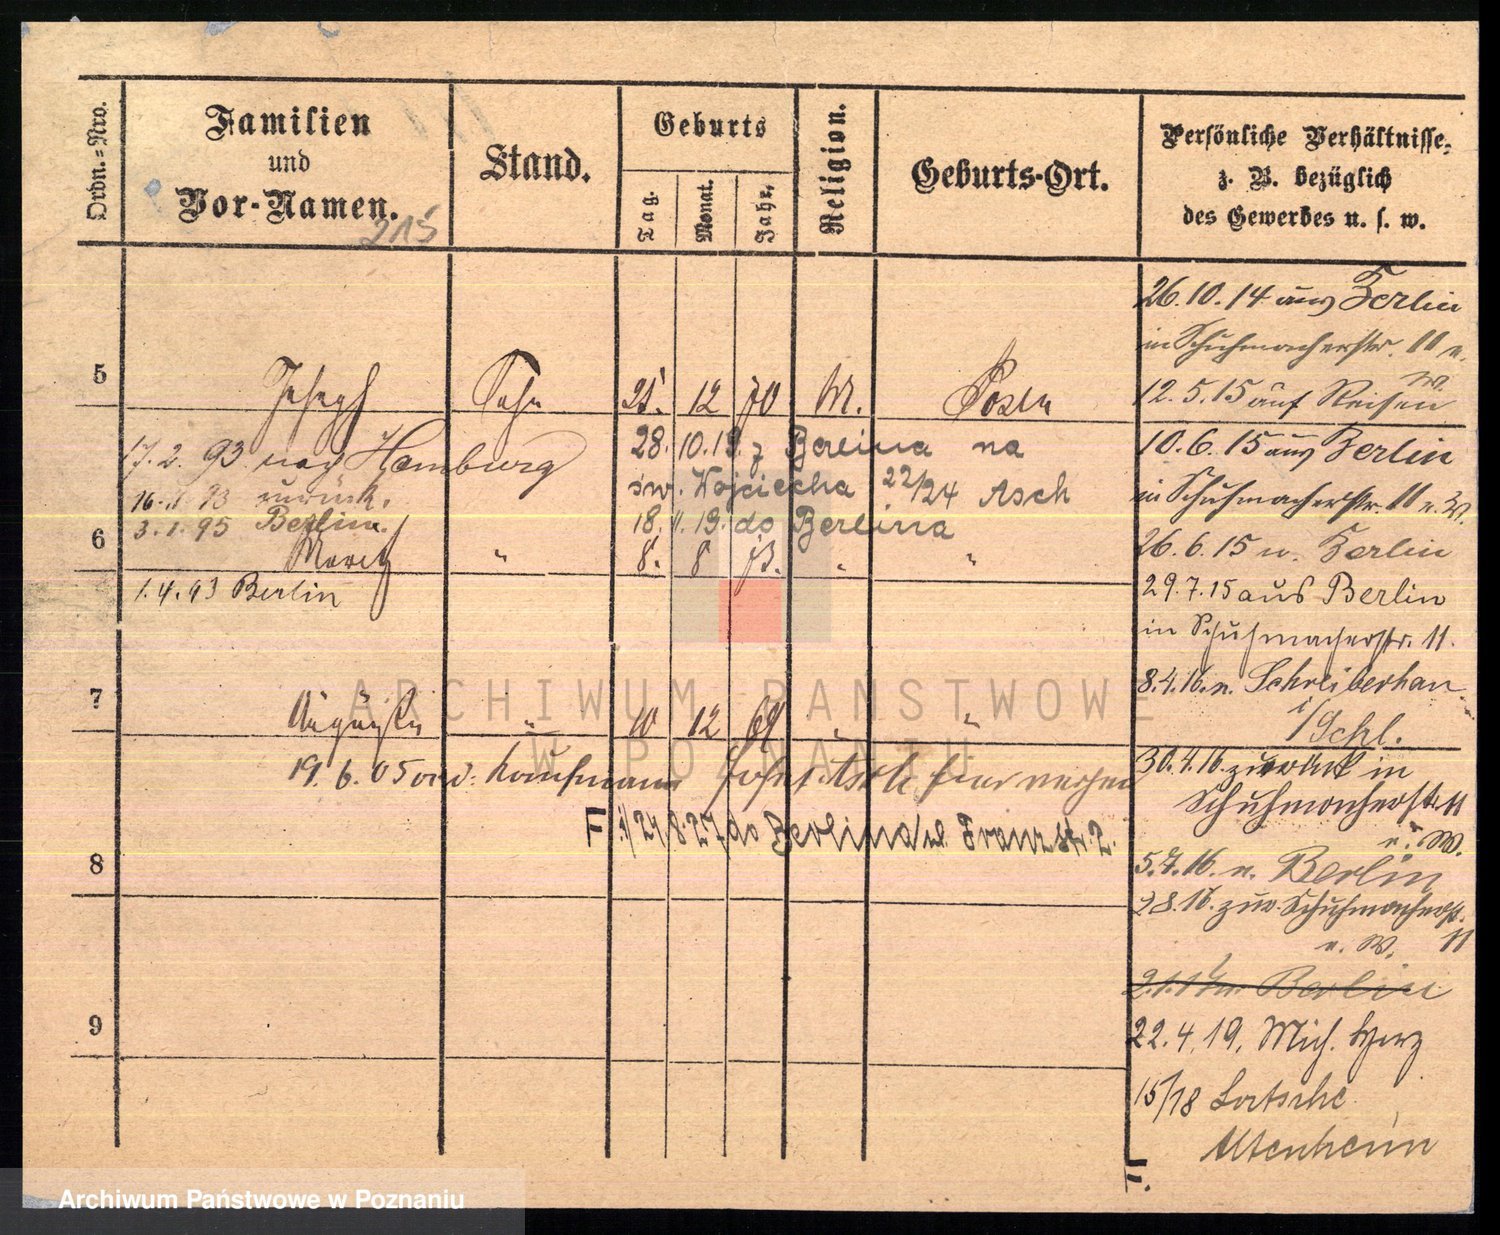 Ordn.-Nro.
Familien
und
Vor-Namen.
215
Stand.
Geburts
Tag.
Monat.
Jahr.
Religion.
Geburts-Ort.
Persönliche Verhältnisse,
z. B. bezüglich
des Gewerbes u. s. w.
5
Joseph
Sohn
25. 12 70
M.
Posen
17. 2. 93 nach Hamburg
16. 1. 93 zurück.
3. 1. 95 Berlin
28. 10. 19. z Berlina na
św. Wojciecha 22/24 Asch
18. 11. 19. do Berlina
6
Moritz
"
8. 8 73.
"
"
1. 4. 93 Berlin
7
Auguste
"
10 12 69
"
"
19. 6. 05 Kaufmann
F 24 8. 27 do Berlina
8
9
26. 10. 14 aus Berlin
in Schuhmacherstr. 11 v.
W.
12. 5. 15 auf Reisen
10. 6. 15 aus Berlin
in Schuhmacherstr. 11 v. W.
26. 6. 15 n. Berlin
29. 7. 15 aus Berlin
in Schuhmacherstr. 11.
8. 4. 16. n. Schreiberhau
i/Schl.
30. 4. 16. zurück in
Schuhmacherstr. 11
v. W.
5. 7. 16. n. Berlin
8. 16. zur. Schuhmacherstr.
v. W. 11
Berlin
22. 4. 19. Mich. Herz
15/18
Altenheim
F.
ARCHIWUM PAŃSTWOWE
W POZNANIU
Archiwum Państwowe w Poznaniu